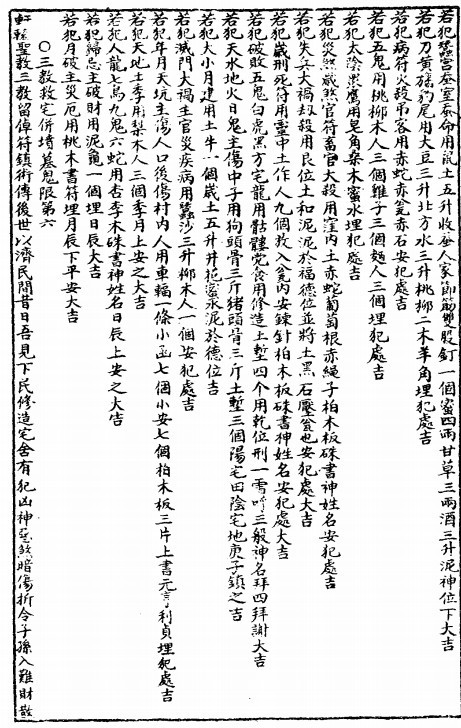 若犯蠶宮蚕室蚕命用鼠土五升收蚕人家節筋雙股釘一個蜜四兩甘草三兩酒三升泥神位下大吉
若犯刀黄旛豹尾用大豆三升北方水三升桃柳二木羊角埋犯處吉
若犯病符火殺吊客用赤蛇赤瓮赤石安犯處吉
若犯五鬼用桃柳木人三個雞子三個麵人三個埋犯處吉
若犯太陰黑鷹用皂角棗木蜜水埋犯處吉
若犯災煞歲煞官符畜官大殺用窪内土赤蛇葡萄根赤繩子柏木板硃書神姓名安犯處吉
若犯失兵大禍劫殺用艮位土和泥泥於福德位並將土黑石壓瓮也安犯處大吉
若犯歲刑死符用臺中土作人九個救入瓮内安鍊針柏木板硃書神姓名安犯處大吉
若犯破敗五鬼白虎黑方宅龍用骷髏党食用修造土塹四个用乾位刑一雷吽三般神名拜四拜謝大吉
若犯天水地火日鬼主傷中子用狗頭骨三斤猪頭骨三斤土塹三個陽宅田陰宅地庚子鎮之吉
若犯大小月建用土牛一個歲土五升井花蜜水泥於德位吉
若犯滅門大禍主官災疾病用蠶沙三升柳木人一個安犯處吉
若犯年月天坑主傷人口後傷村内人用車輻一條小函七個小安七個柏木板三片上書元亨利貞埋犯處吉
若犯天地土季用棗木人三個季月上安之大吉
若犯人龍七鳥九鬼六蛇用杏李木硃書神姓名日辰上安之大吉
若犯歸忌主破財用泥龜一個埋日辰大吉
若犯月破主災厄用桃木書符埋月辰下平安大吉
○三教救宅併堵墓鬼限第六
軒轅聖教三教留倬符鎮術傳後世以濟民間昔日吾見下民修造宅舍有犯凶神惡煞暗傷折令子孫入難財散